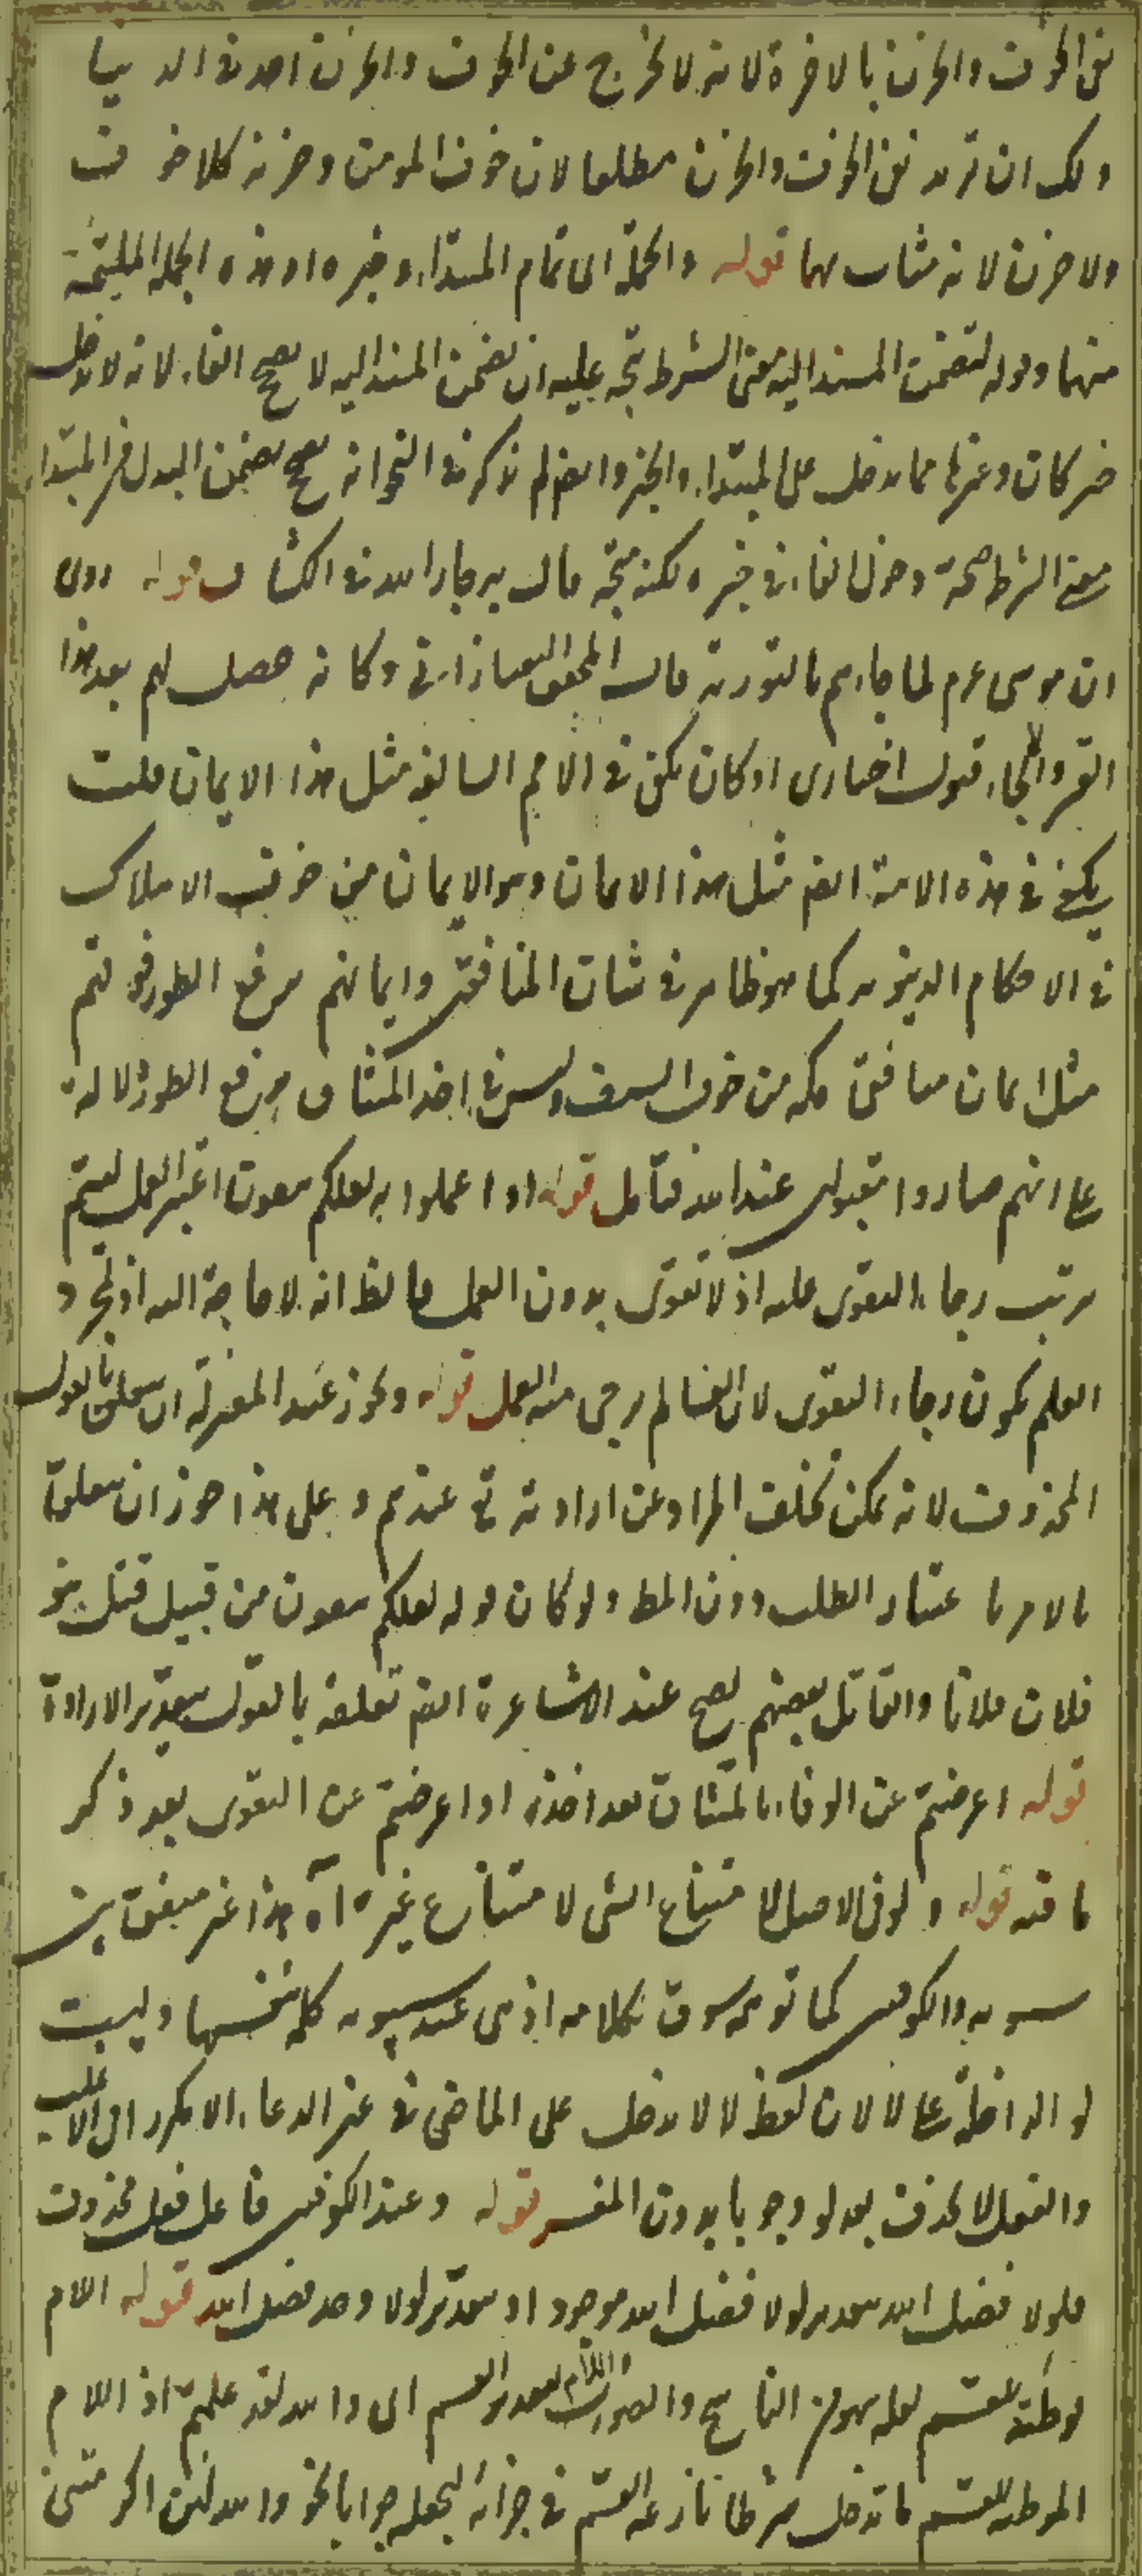 نفى الخوف والحزن بالاخرة لانه لا يخرج عن الخوف والحزن احد فى الدنيا
ولك ان تريد نفى الخوف والحزن مطلقا لان خوف المؤمن وحزنه كلا خوف
ولا حزن لانه مثاب بهما قوله والجملة اى تمام المبتداء وخبره او هذه الجملة الملتئمة
منهما وقوله لتضمن المسند اليه معنى الشرط يتجه عليه ان تضمن المسند اليه لا يصحح الفاء لانه لا يدخل
خبر كان وغيرها مما يدخل على المبتداء والخبر وايضا لم يذكر فى النحو انه يصح تضمن البدل من المبتداء
معنى الشرط صحة دخول الفاء فى خبره ولكنه يتجه ما قال به جار الله فى الكشاف قوله روى
ان موسى عم لما جاءهم بالتورية قال المحقق التفتازانى وكانه حصل لهم بعد هذا
القسر والالجاء قبول اختيارى او كان يكفى فى الامم السالفة مثل هذا الايمان قلت
يكفى فى هذه الامة ايضا مثل هذا الايمان وهو الايمان من خوف الاهلاك
فى الاحكام الدنيوية كما هو ظاهر فى شان المنافقين وايمانهم برفع الطور فوقهم
مثل ايمان منافقى مكة من خوف السيف وليس فى اخذ الميثاق برفع الطور دلالة
على انهم صاروا مقبولين عند الله فتأمل قوله او اعملوا به لعلكم تتقون اعتبر العمل ليتم
ترتب رجاء التقوى عليه اذ لا تقوى بدون العمل والظ انه لا حاجة اليه اذ بمجرد
العلم يكون رجاء التقوى لان العالم يرجى منه العمل قوله ويجوز عند المعتزلة ان يتعلق بالقول
المحذوف لانه يمكن تخلف المراد عن ارادته تع عندهم وعلى هذا جوز ان يتعلق
بالامر باعتبار الطلب دون المط ولو كان قوله لعلكم تتقون من قبيل قتل بنو
فلان فلانا والقاتل بعضهم يصح عند الاشاعرة ايضا تعلقه بالقول بتقدير الارادة
قوله اعرضتم عن الوفاء بالميثاق بعد اخذه او اعرضتم عن التقوى بعد ذكر
ما فيه قوله ولو فى الاصل لامتناع الشئ لامتناع غيره آه هذا غير متفق بين
سيبويه والكوفيين كما توهمه سوق كلامه اذ هى عند سيبويه كلمة بنفسها وليست
لو الداخلة على لا لان لفظ لا لا يدخل على الماضى فى غير الدعاء الا مكررا فى الاغلب
والفعل لا يحذف بعد لو وجوبا بدون المفسر قوله وعند الكوفيين فاعل فعل محذوف
فلولا فضل الله بتقدير لولا فضل الله موجود او بتقدير لولا وجد فضل الله قوله اللام
موطئة للقسم لعله سهو من الناسخ والصواب اللام بتقدير القسم اى والله لقد علمتم اذ اللام
الموطئة للقسم ما تدخل شرطا نازعه القسم فى جزائه ليجعله جوابا نحو والله لئن اكرمتنى